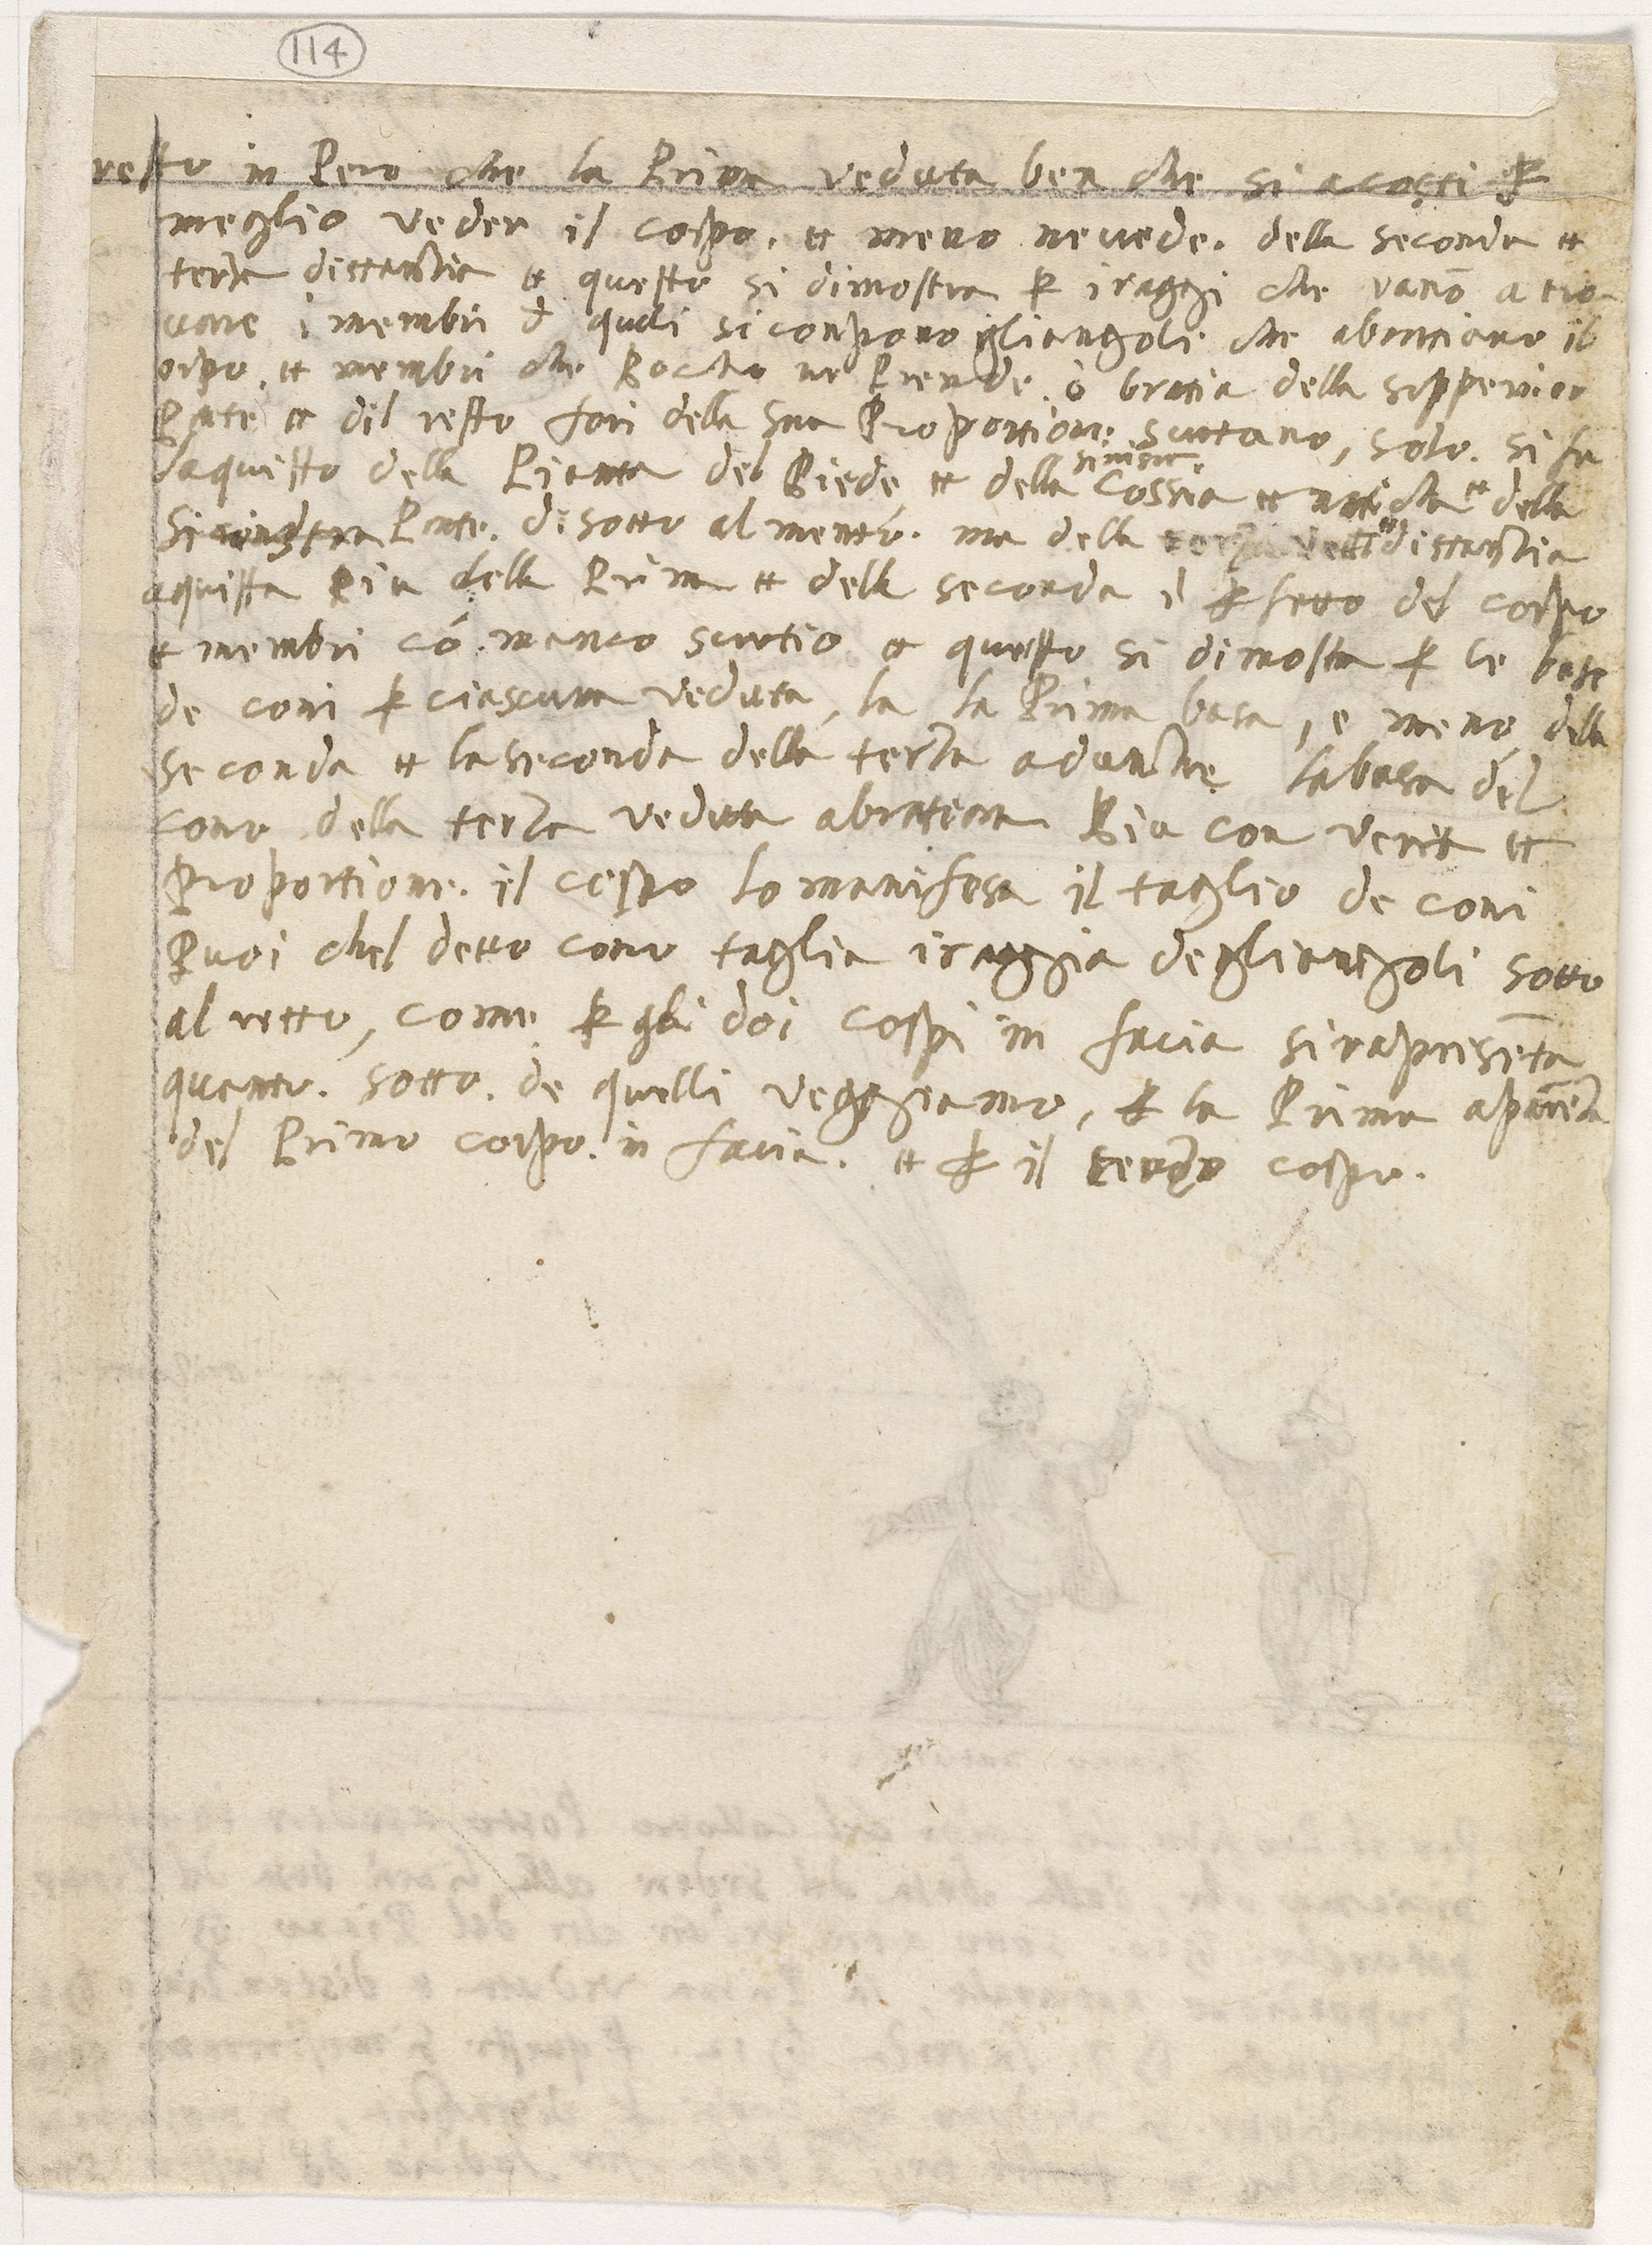 114
resto in Pero che la Prima veduta ben che si acosti ꝑ
meglio veder il corpo. et meno ne vede. della seconda et
terza distantia et questo si dimostra ꝑ i raggi che vanō a tro
vare i membri d quali si conpono gliangoli che abraciano il
orpo. et membri che Lochio ne Prende o bracia della supperior
Parte et dil resto fori della sua Proportione scurtano, solo. si fa
daquisto della Pianta del Piede et della sinistr. Cossia et naticha et della
Parte. disotto al mento. ma della distantia
aquista Piu della Prima et della seconda il ꝑfetto del corpo
et membri có manco scurtio et questo si dimostra ꝑ le base
de coni ꝑ ciascuna veduta, la la Prima basa, e meno della
seconda et la seconda della terza adunche labasa del
cono della terza veduta abratiara Piu con verita et
Proportione. il corpo lo manifesa il taglio de coni
Puoi chel detto cono taglia iraggia degliangoli sotto
al retto, come ꝑ gli doi corpi in facia si rapresēta
quanto. sotto. de quelli veggiamo, ꝑ la Prima aparēza
del Primo corpo. in facia. et ꝑ il terzo corpo.